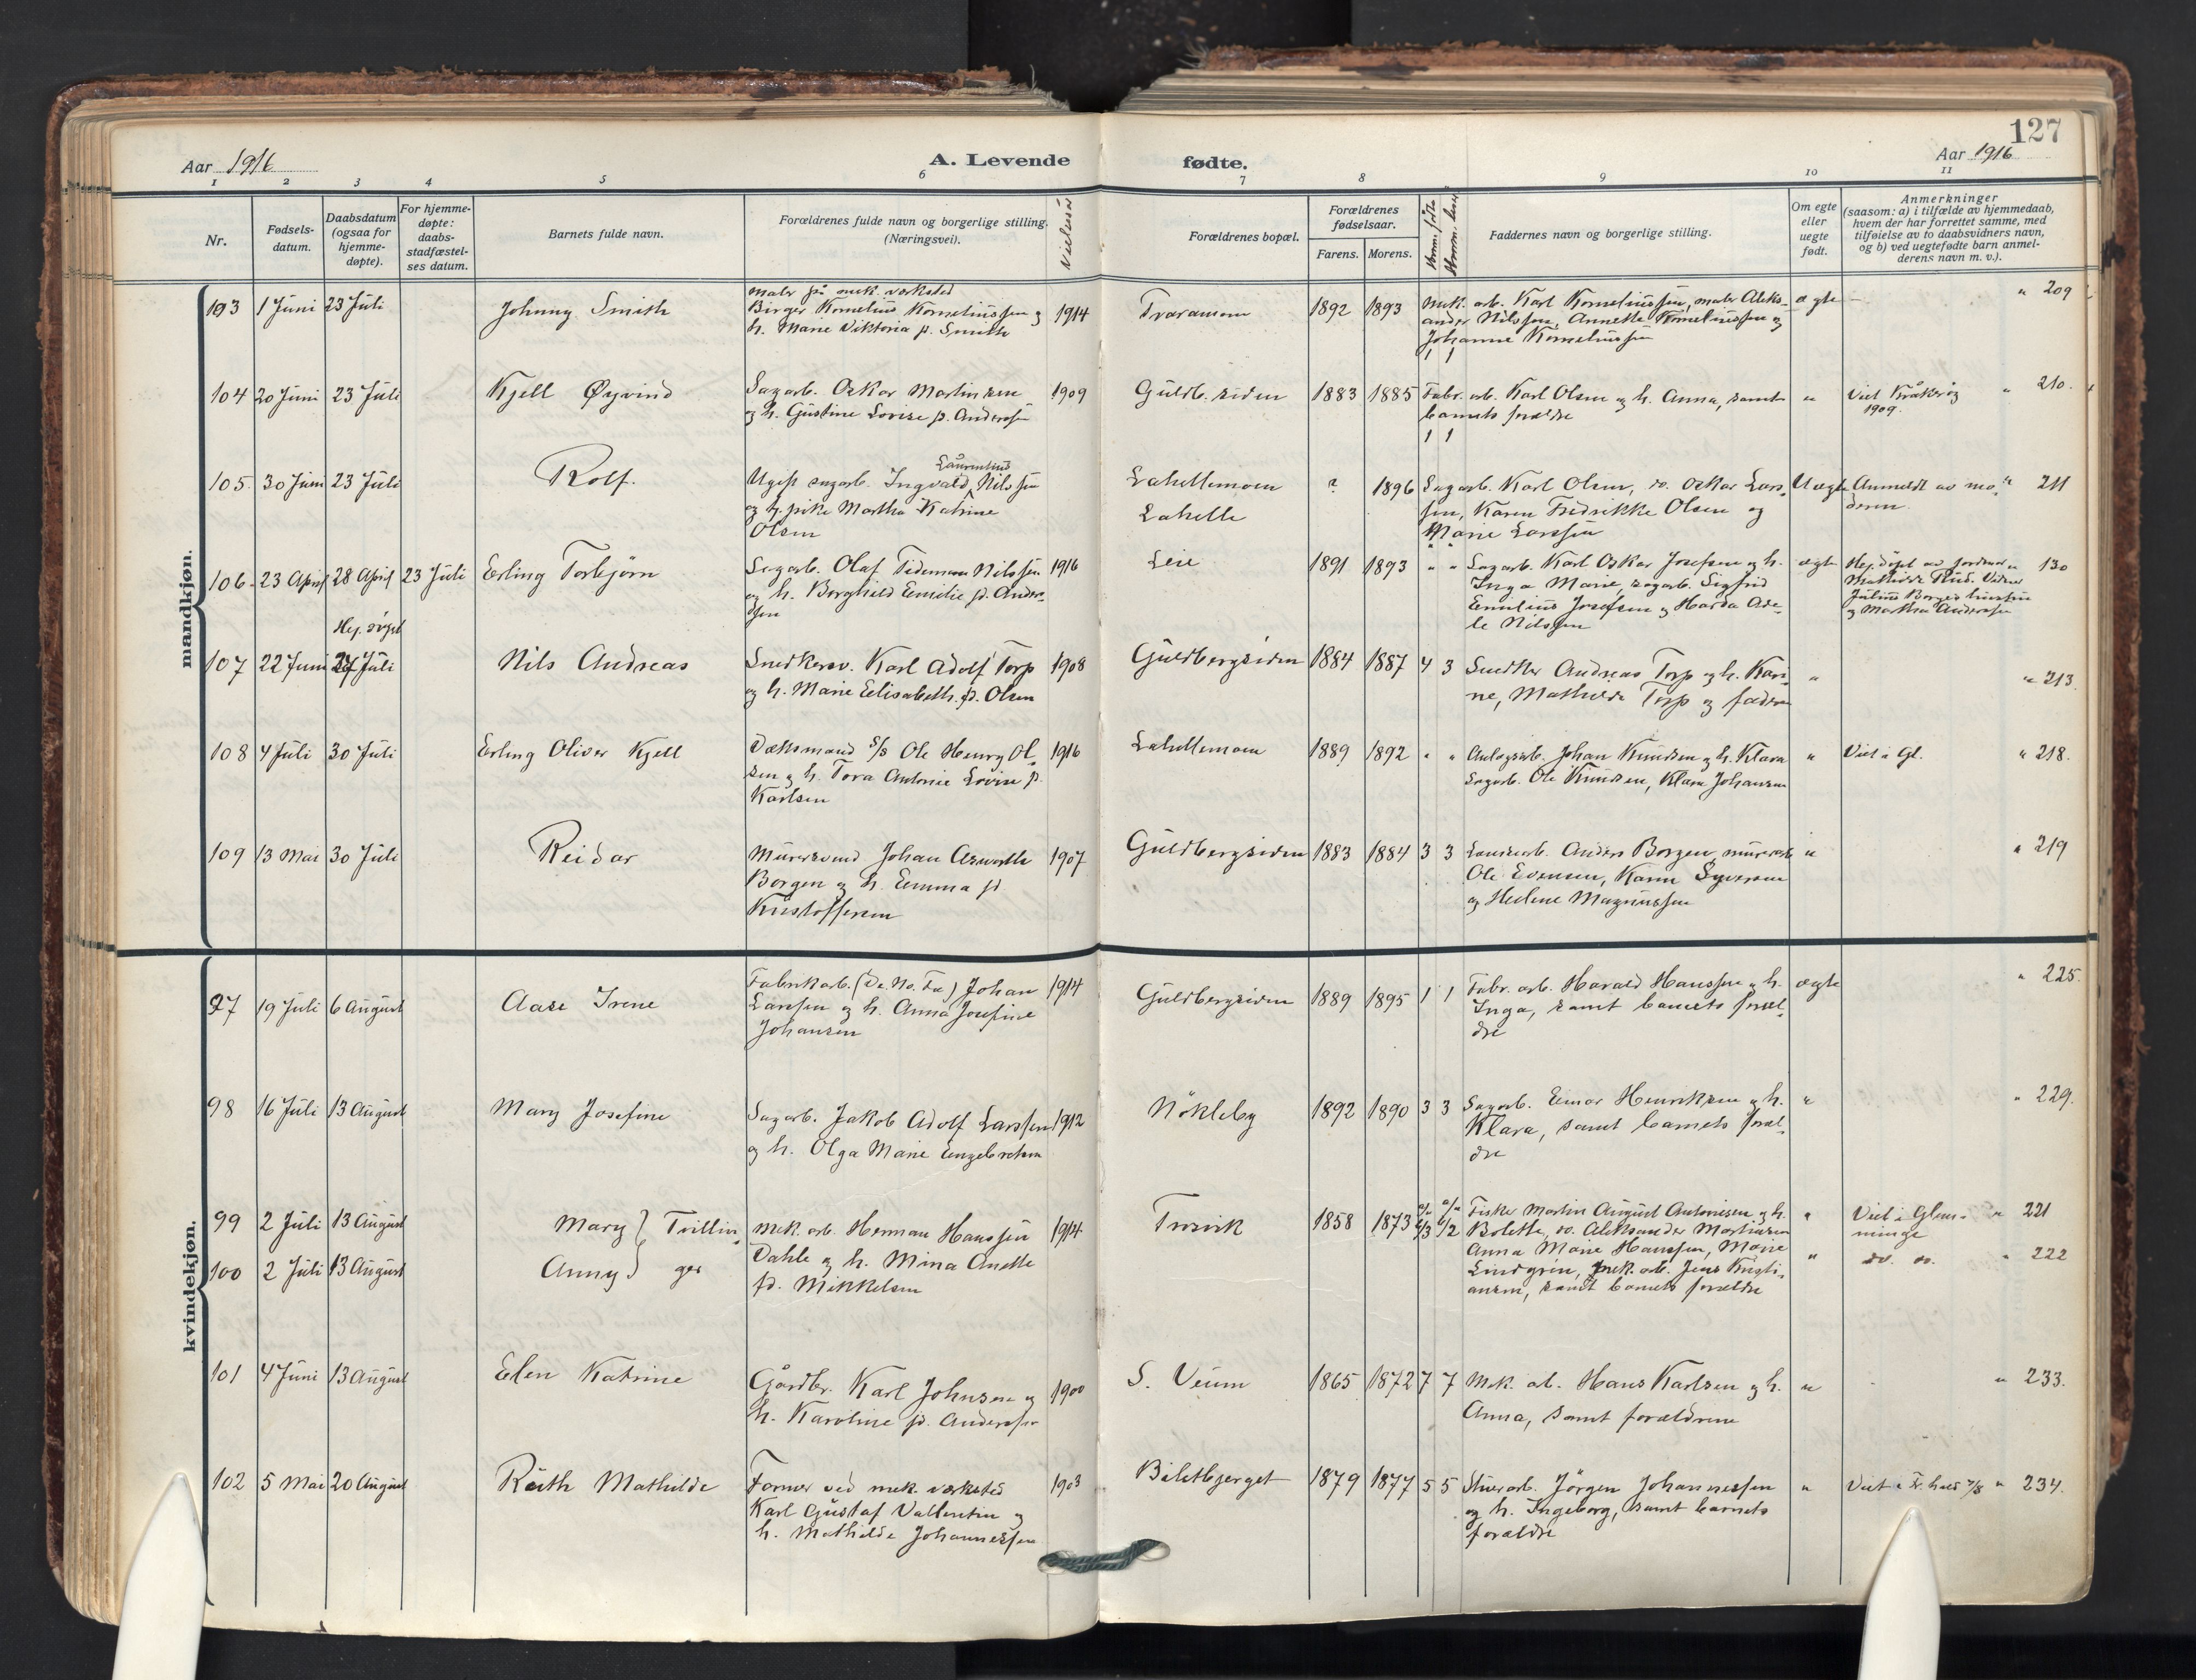 127
Aar 1916
A. Levende
fødte.
Aar 1916
1 2 3 4 5 6 7 8 9 10 11
Nr.
Fødsels-
datum.
Daabsdatum
(ogsaa for
hjemme-
døpte).
For hjemme-
døpte:
daabs-
stadfæstel-
ses datum.
Barnets fulde navn.
Forældrenes fulde navn og borgerlige stilling.
(Næringsvei).
Forældrenes bopæl.
Forældrenes
fødselsaar.
Farens. Morens.
Faddernes navn og borgerlige stilling.
Om egte
eller
uegte
født.
Anmerkninger
(saasom: a) i tilfælde av hjemmedaab,
hvem der har forrettet samme, med
tilføielse av to daabsvidners navn,
og b) ved uegtefødte barn anmel-
derens navn m. v.).
mandkjøn.
103 1 Juni 23 Juli Johnny Smith
maler på mek. værksted
Birger Kornelius Korneliussen og
h. Marie Viktoria f. Smith
1914 Traramoen 1892 1893
Mek. arb. Karl Korneliussen, maler Aleks-
ander Nilssen, Annette Korneliussen og
Johanne Korneliussen
1 1
ægte " 209
104 20 Juni 23 Juli Kjell Øyvind
Sagarb. Oskar Martinsen
og h. Gustine Lovise f. Anderssen
1909 Guldb. siden 1883 1885
Fabr. arb. Karl Olsen og h. Anna, samt
barnets forældre
1 1
" Viet Kråkerøy
1909.
" 210.
105. 30 Juni 23 Juli Rolf.
Laurentius
Ugift sagarb. Ingvald Nilssen
og h. pike Martha Katrine
Olsen
Lahellemoen
Lahelle
? 1896
Sagarb. Karl Olsen, do. Oskar Lars-
sen, Karen Fredrikke Olsen og
Marie Larssen
Uægte Anmeldt av mo-
deren
" 211
106. 23 April 28 April 23 Juli Erling Torbjørn
Sagarb. Olaf Tideman Nilssen
og h. Borghild Emilie f. Ander-
ssen
1916 Leie 1891 1893 " "
Sagarb. Karl Oskar Josefsen og h.
Inga Marie, sagarb. Sigfrid
Emilius Josefsen og Harda Ade-
le Nilssen
ægte Hj. døpt av jordmor
Mathilde Rud. Vidner
og Martha Anderssen
" 130
Hj. døpt
107 22 Juni 27 Juli Nils Andreas
Snedkersv. Karl Adolf Torp
og h. Marie Elisabeth f. Olsen
1908 Guldbergsiden 1884 1887 4 3
Snedker Andreas Torp og h. Kari-
ne, Mathilde Torp og faderen
" " 213.
108 4 Juli 30 Juli Erling Oliver Kjell
Dæksmand S/S Ole Henry Ol-
sen og h. Tora Antonie Lovise f.
Karlsen
1916 Lahellemoen 1889 1892 " "
Anlegsarb. Johan Knudsen og h. Klara
Sagarb. Ole Knudsen, Klara Johansen
" Viet i Gl. " 218.
109 13 Mai 30 Juli Reidar
Murersvend Johan
Borgen og h. Emma f.
Kristoffersen
1907 Guldbergsiden 1883 1884 3 3
Anders Borgen, murerarb
Ole Evensen, Karen Syversen
og Helene Magnussen
" " 219
kvindekjøn.
97 19 Juli 6 August Aase Irene
Fabrikarb. (De. No. Fa) Johan
Larssen og h. Anna Josefine
Johansen
1914 Guldbergsiden 1889 1895 1 1
Fabr. arb. Harald Hanssen og h.
Inga, samt barnets foræl-
dre
ægte " 225.
98 16 Juli 13 August Mary Josefine
Sagarb. Jakob Adolf Larssen
og h. Olga Marie Engebretsen
1912 Nökleby 1892 1890 3 3
Sagarb. Einar Henriksen og h.
Klara, samt barnets foræl-
dre
" " 229.
99 2 Juli 13 August Mary } Tvillin-
100 2 Juli 13 August Anny } ger
Mek. arb. Herman Hanssen
Dahle og h. Mina Anette
fd. Mikkelsen
1914 Trosvik 1858 1873
Fisker Martin August Antonisen og h.
Bolette, do. Aleksander Martinsen
Anna Marie Hanssen, Marie
Lindgren, mek. arb. Jens Kristi-
ansen, samt barnets forældre
" Viet i Glem-
minge
" 221
" do. do. " 222
101 4 Juni 13 August Elen Katrine
Gårdbr. Karl Johnsen og
h. Karoline fd. Anderssen
1900 S. Veum 1865 1872 7 7
Mek. arb. Hans Karlsen og h.
Anna, samt forældrene
" " 233.
102 5 Mai 20 August Ruth Mathilde
Former ved mek. værksted
Karl Gustaf Vallentin og
h. Mathilde Johannessen
1903 Biletbjerget 1879 1877 5 5
Stuerarb. Jörgen Johannessen
og h. Ingeborg, samt barnets
forældre
" Viet i Fr.hald " 234.